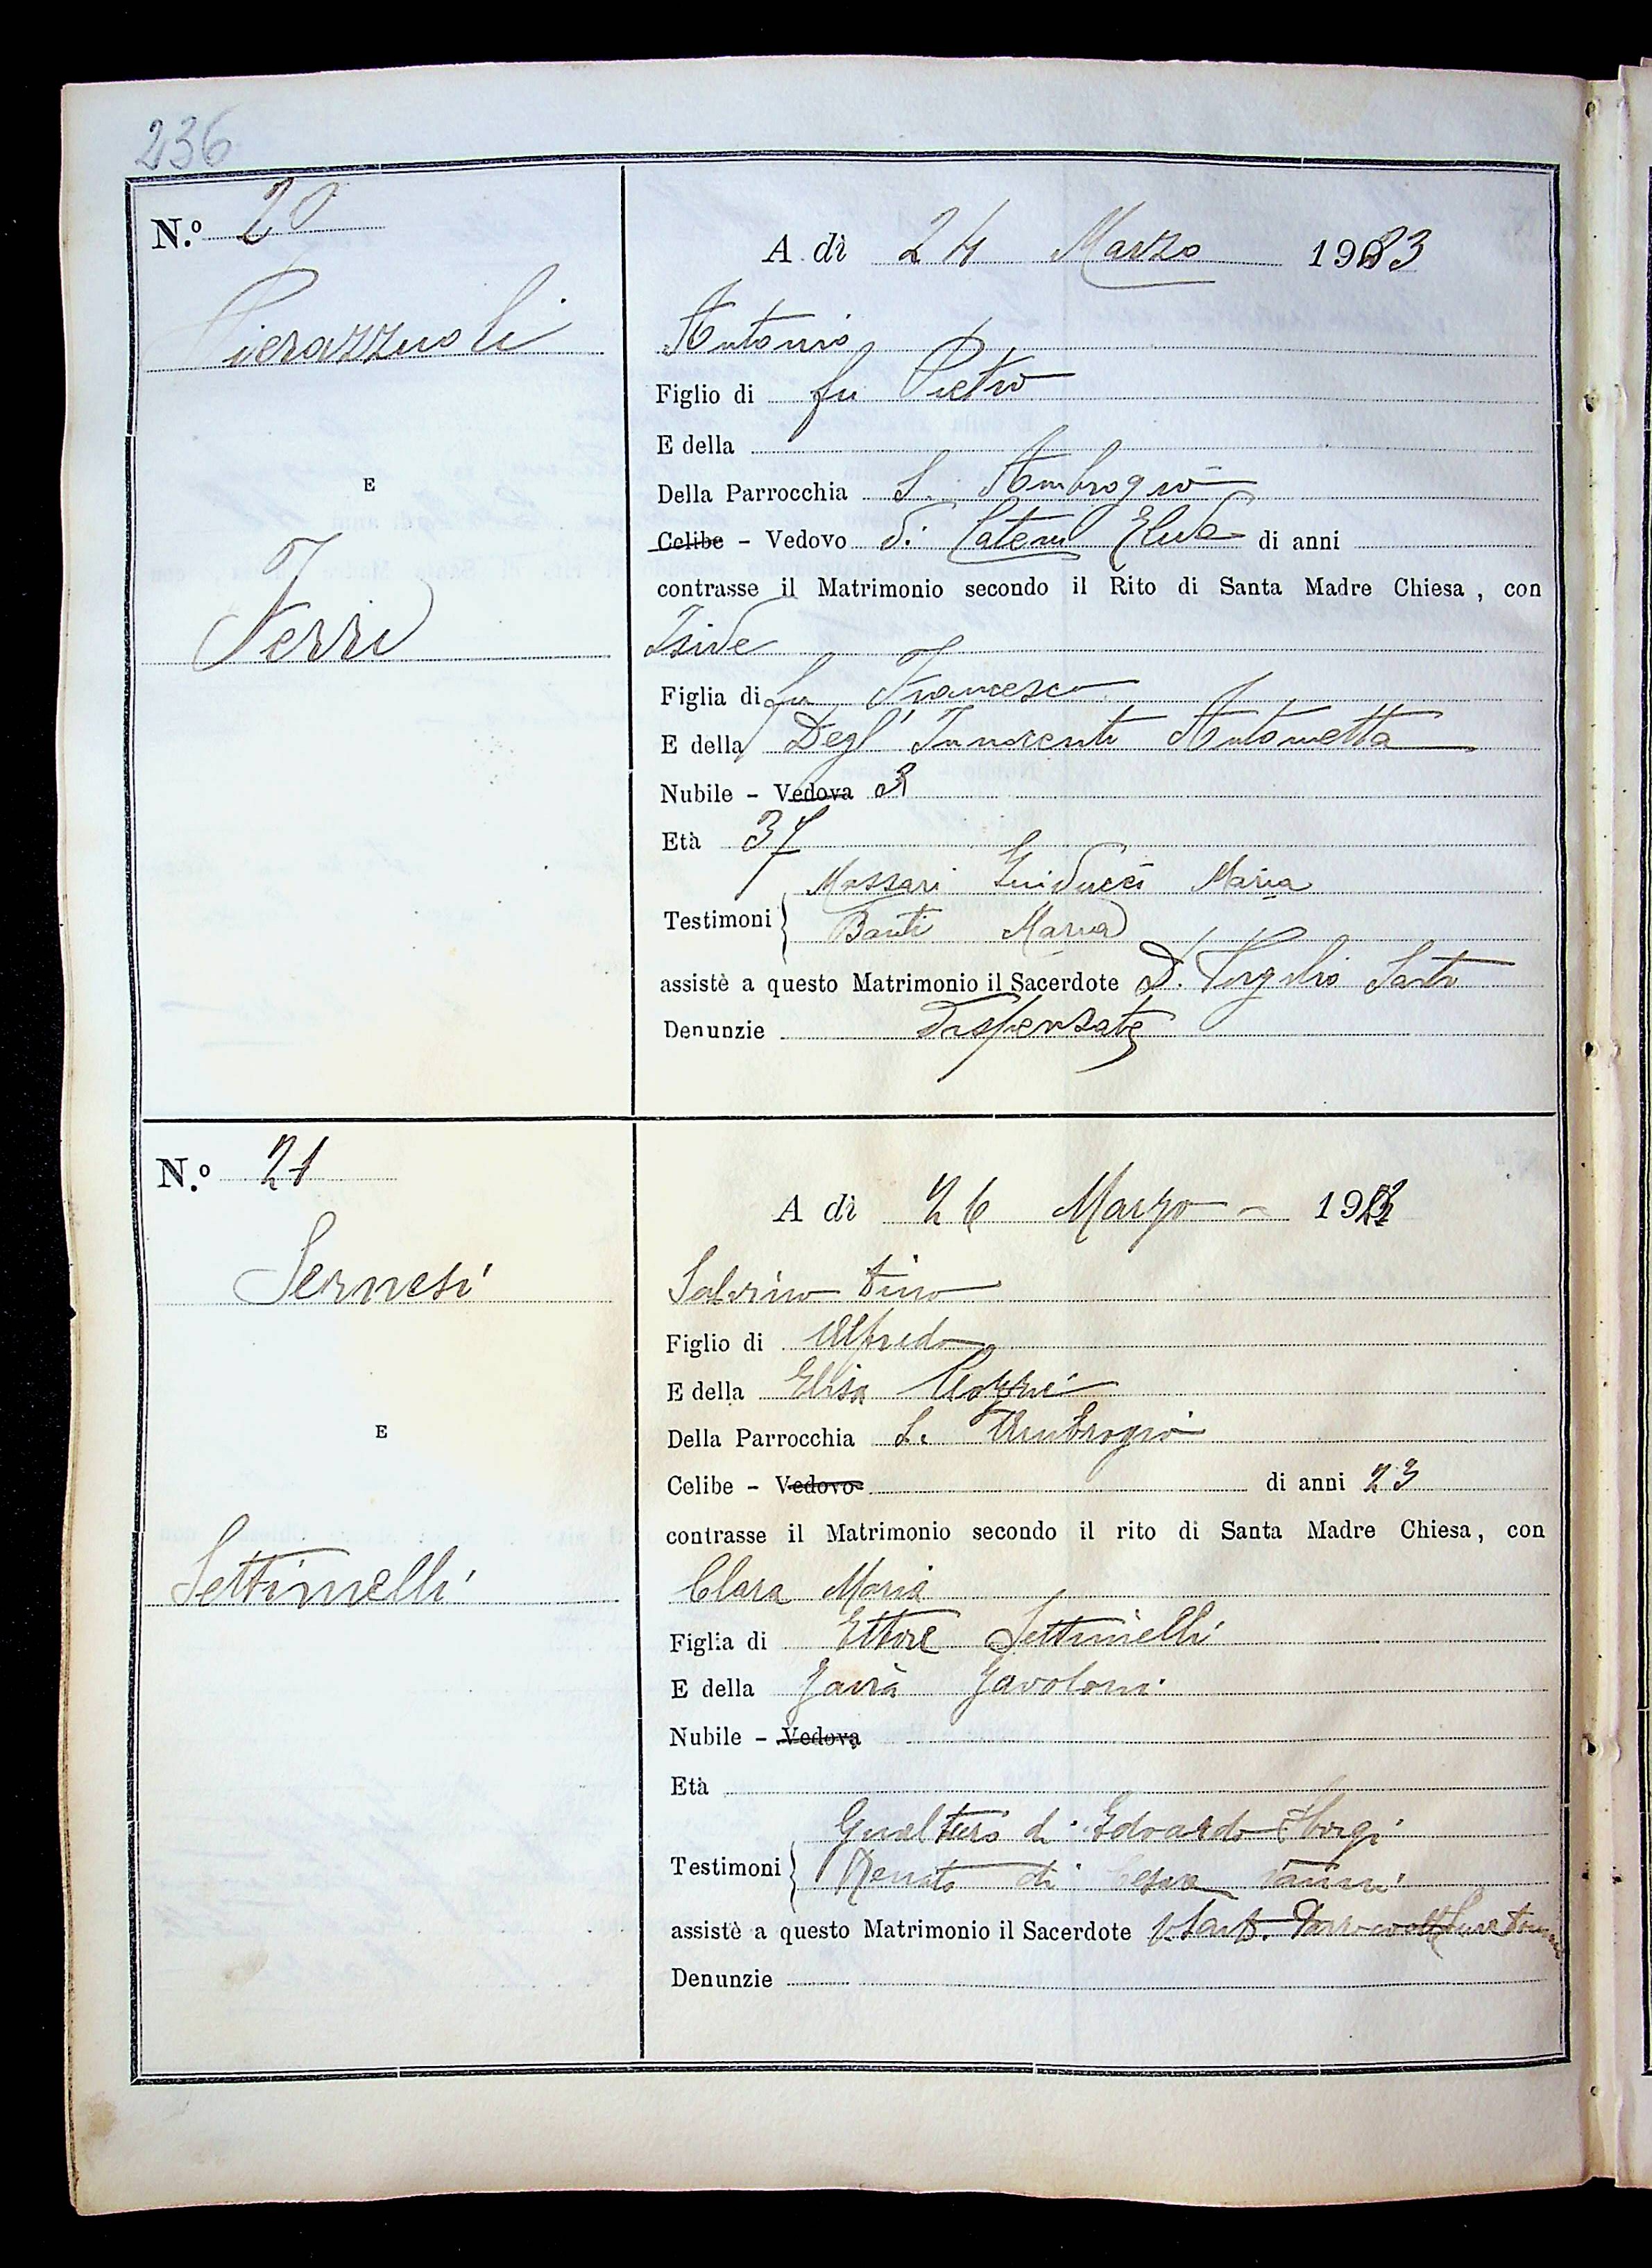 236
N.º 20
A dì 24 Marzo 1923
Pierazzuoli
Antonio
Figlio di fu Pietro
E della
Della Parrocchia S. Ambrogio
E
Celibe - Vedovo di Cateni Elisa di anni
contrasse il Matrimonio secondo il Rito di Santa Madre Chiesa, con
Ferri
Iside
Figlia di fu Francesco
E della Degl' Innocenti Antonietta
Nubile - Vedova
Età 37
Massari Guiducci Maria
Testimoni
Banti Maria
assistè a questo Matrimonio il Sacerdote D. Virgilio Sarto
Denunzie Dispensate
N.º 21
A dì 26 Marzo - 192
Sernesi
Salvino Tino
Figlio di Alfredo
E della Elisa
Della Parrocchia S. Ambrogio
E
Celibe - Vedovo di anni 23
contrasse il Matrimonio secondo il rito di Santa Madre Chiesa, con
Settimelli
Clara Maria
Figlia di Ettore Settimelli
E della Gavoloni
Nubile - Vedova
Età
Gualtiero di Edoardo
Testimoni
Renato di Cesare Vannini
assistè a questo Matrimonio il Sacerdote
Denunzie